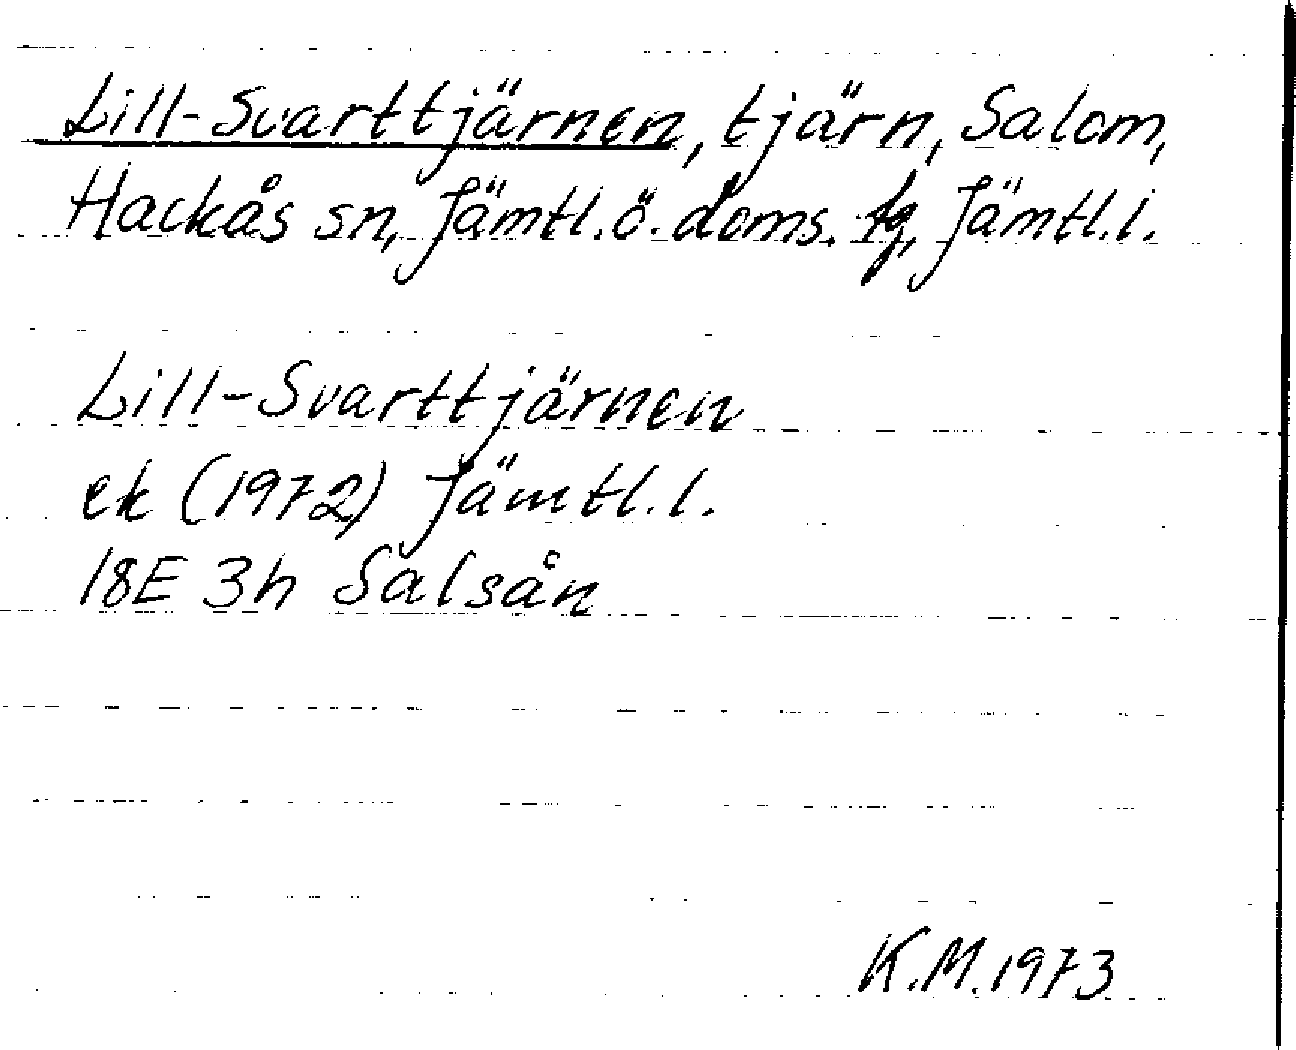 Lill-Svarttjärnen, tjärn, Salom,
Hackås sn, Jämtl.ö.doms. tg, Jämtl.l.
Lill-Svarttjärnen
ek (1972) Jämtl.l.
18E 3h Salsån
K.M.1973